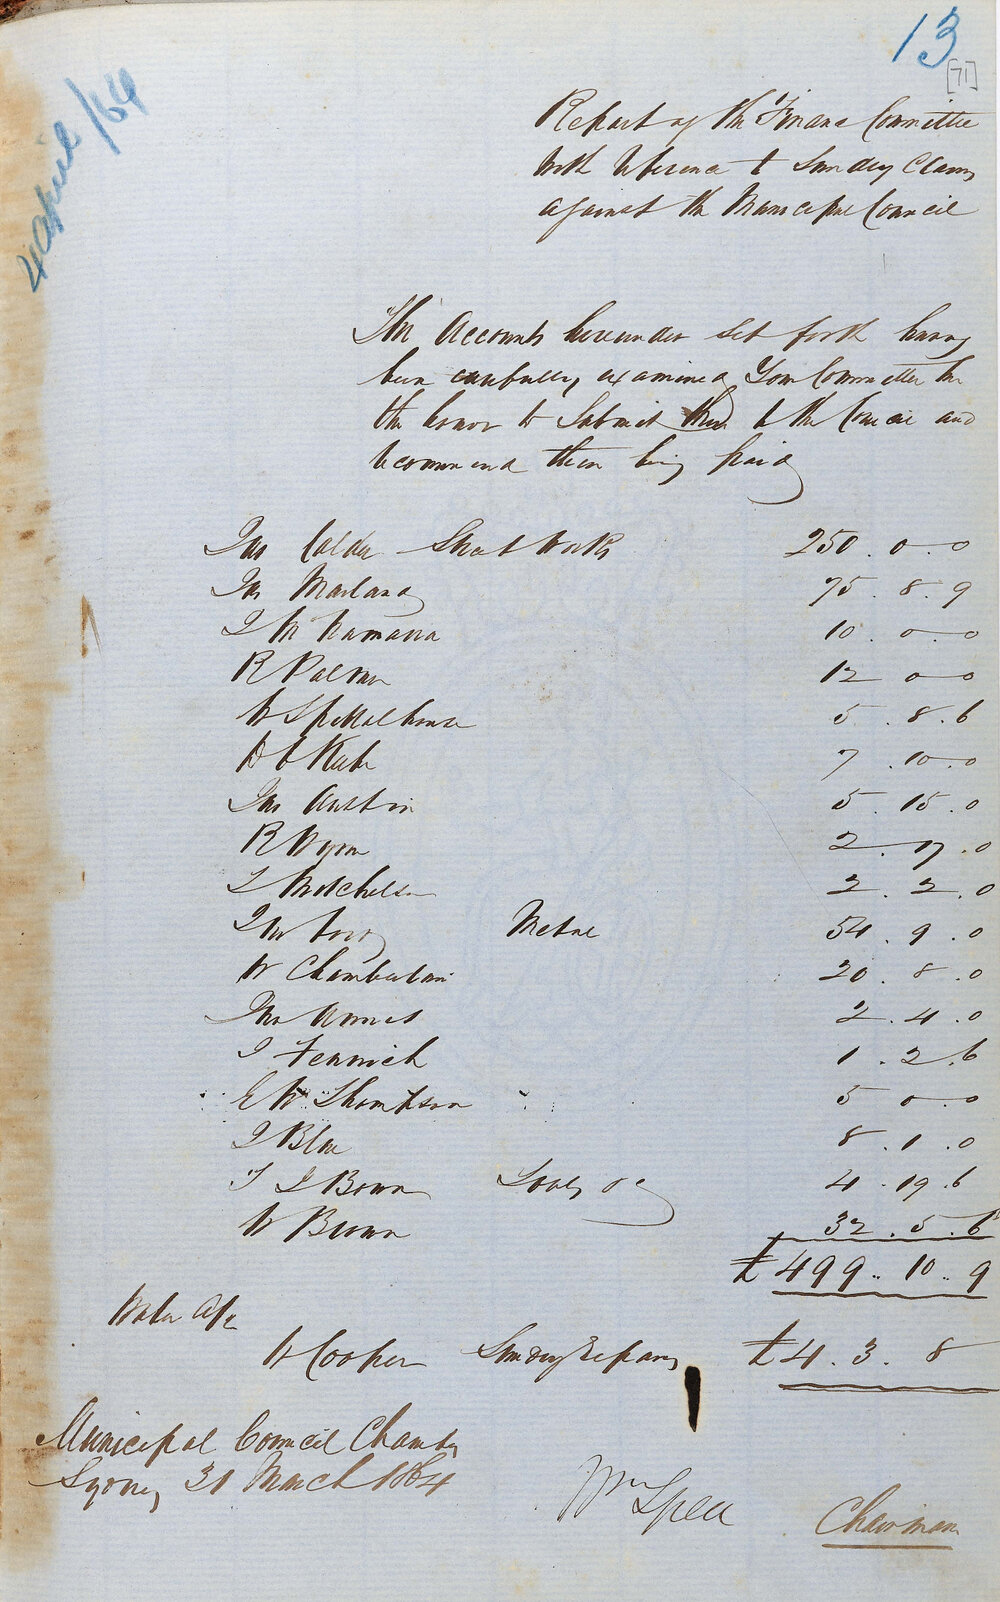 13
[71]
4 April /64
Report of the Finance Committee
with reference to Sundry Claims
against the Municipal Council
The Accounts hereunder set forth having
been carefully examined Your Committee have
the honor to Submit them to the Council and
recommend them being paid
Jas Calder Street Works 250 . 0 . 0
Jas Marland 75 . 8 . 9
J McNamara 10 . 0 . 0
R Palmer 12 0 0
W Spittalhouse 5 . 8 . 6
7 . 10 . 0
Jas Austin 5 . 15 . 0
R Wynn 2 . 17 . 0
J Mitchelson 2 . 2 . 0
Metal 54 . 9 . 0
W Chamberlain 20 . 8 . 0
2 . 4 . 0
J Fenwick 1 . 2 . 6
E W Thompson 5 0 0
J Blue 8 . 1 . 0
T J Bown 4 . 19 . 6
W Brown 32 . 5 . 6
£499 .. 10 .. 9
Water A/c
W Cooper Sundry Repairs £4 . 3 . 8
Municipal Council Chamber
Sydney 31 March 1864
Wm Speer Chairman